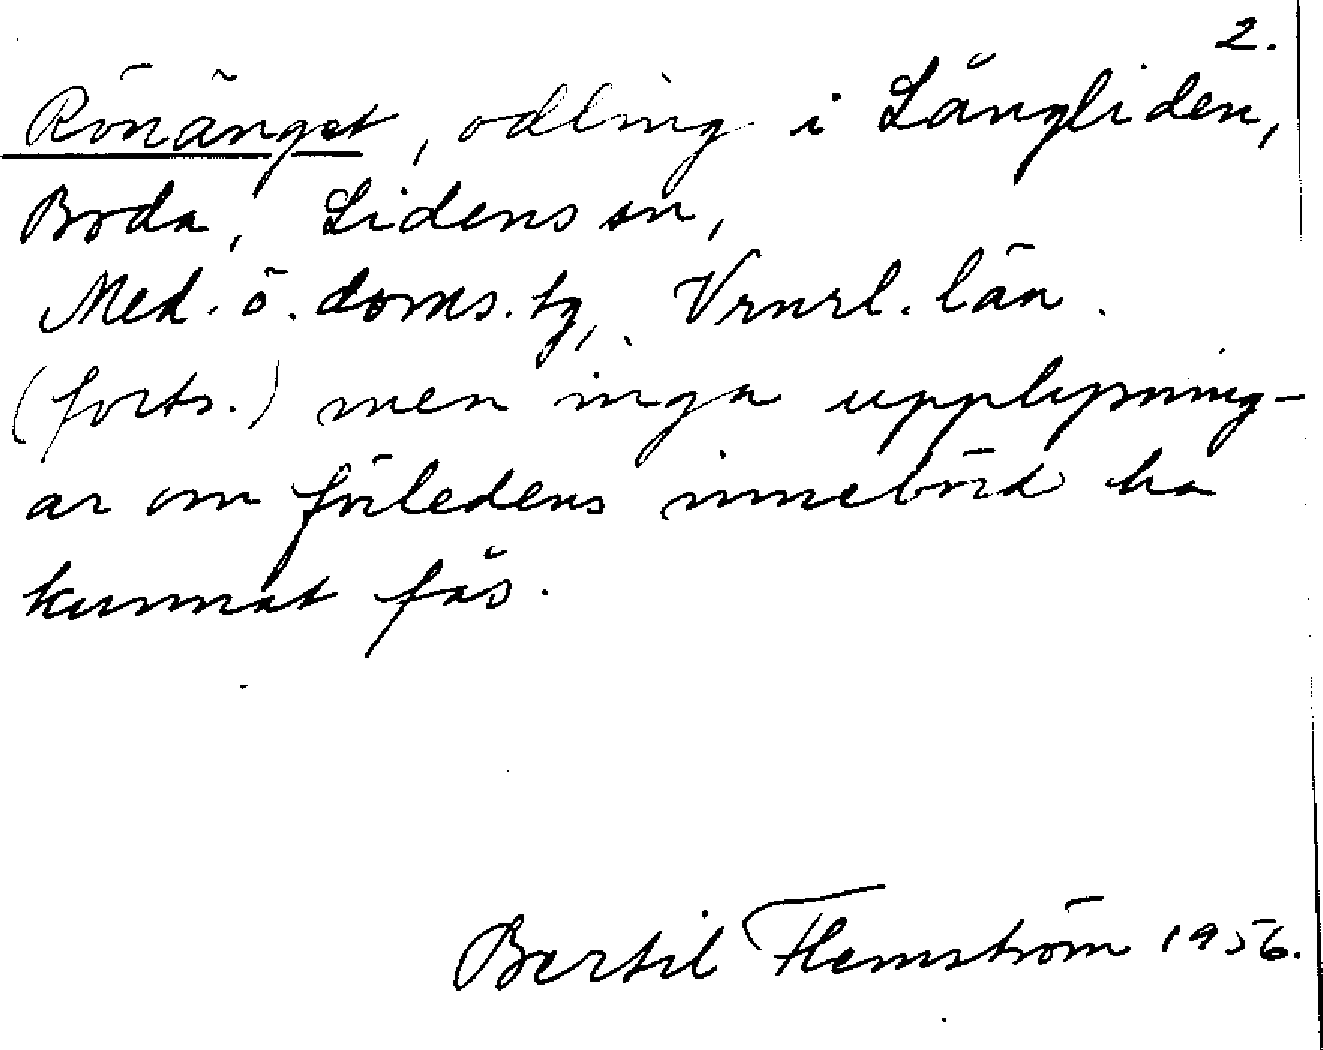 2.
Rönänget, odling i Långliden,
Boda, Lidens sn,
Med. ö. doms. tg, Vrnrl. län.
(forts.) men inga upplysning-
ar om förledens innebörd ha
kunnat fås.
Bertil Flemström 1956.